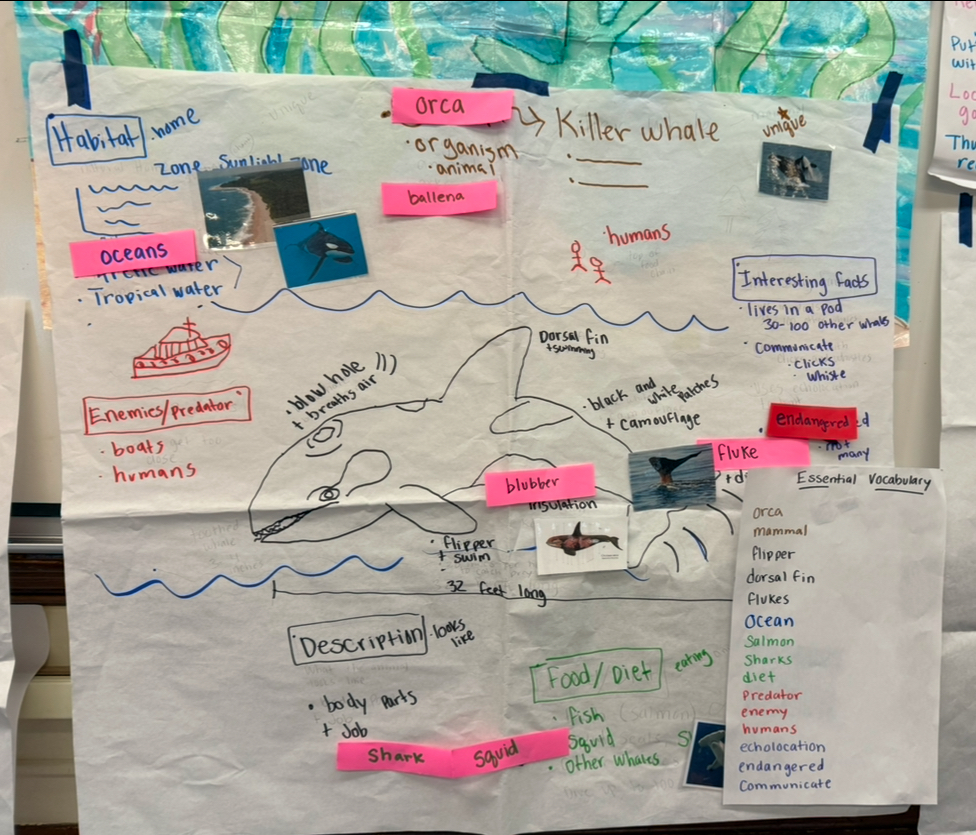 Habitat
·home
Zone
Sunlight zone
oceans
Arctic water
· Tropical water
orca
Killer whale
· organism
· animal
ballena
unique
· humans
Interesting facts
· lives in a pod
30-100 other whales
· Communicate
· clicks
· whiste
endangered
· not
many
Enemies/predator
· boats
· humans
· blow hole
+ breaths air
Dorsal fin
+swimming
· black and
white patches
+ camouflage
fluke
blubber
insulation
· flipper
+ swim
32 feet long
Description
·looks
like
· body parts
+ Job
Food/Diet
eating
· fish
Squid
· other whales
Shark
Squid
Essential Vocabulary
orca
mammal
flipper
dorsal fin
flukes
Ocean
Salmon
Sharks
diet
Predator
enemy
humans
echolocation
endangered
Communicate